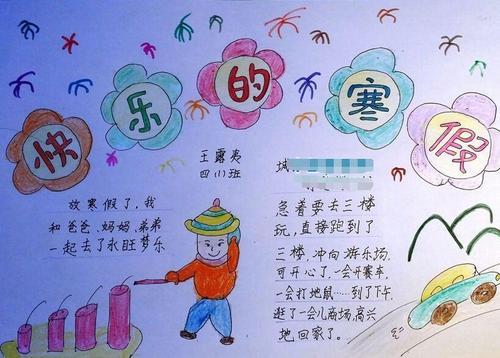 快乐的寒假
王露夷
四(1)班
放寒假了，我
和爸爸、妈妈、弟弟
一起去了永旺梦乐
城
急着要去三楼
玩，直接跑到了
三楼，冲向游乐场，
可开心了，一会开赛车，
一会打地鼠……到了下午，
逛了一会儿商场，高兴
地回家了。